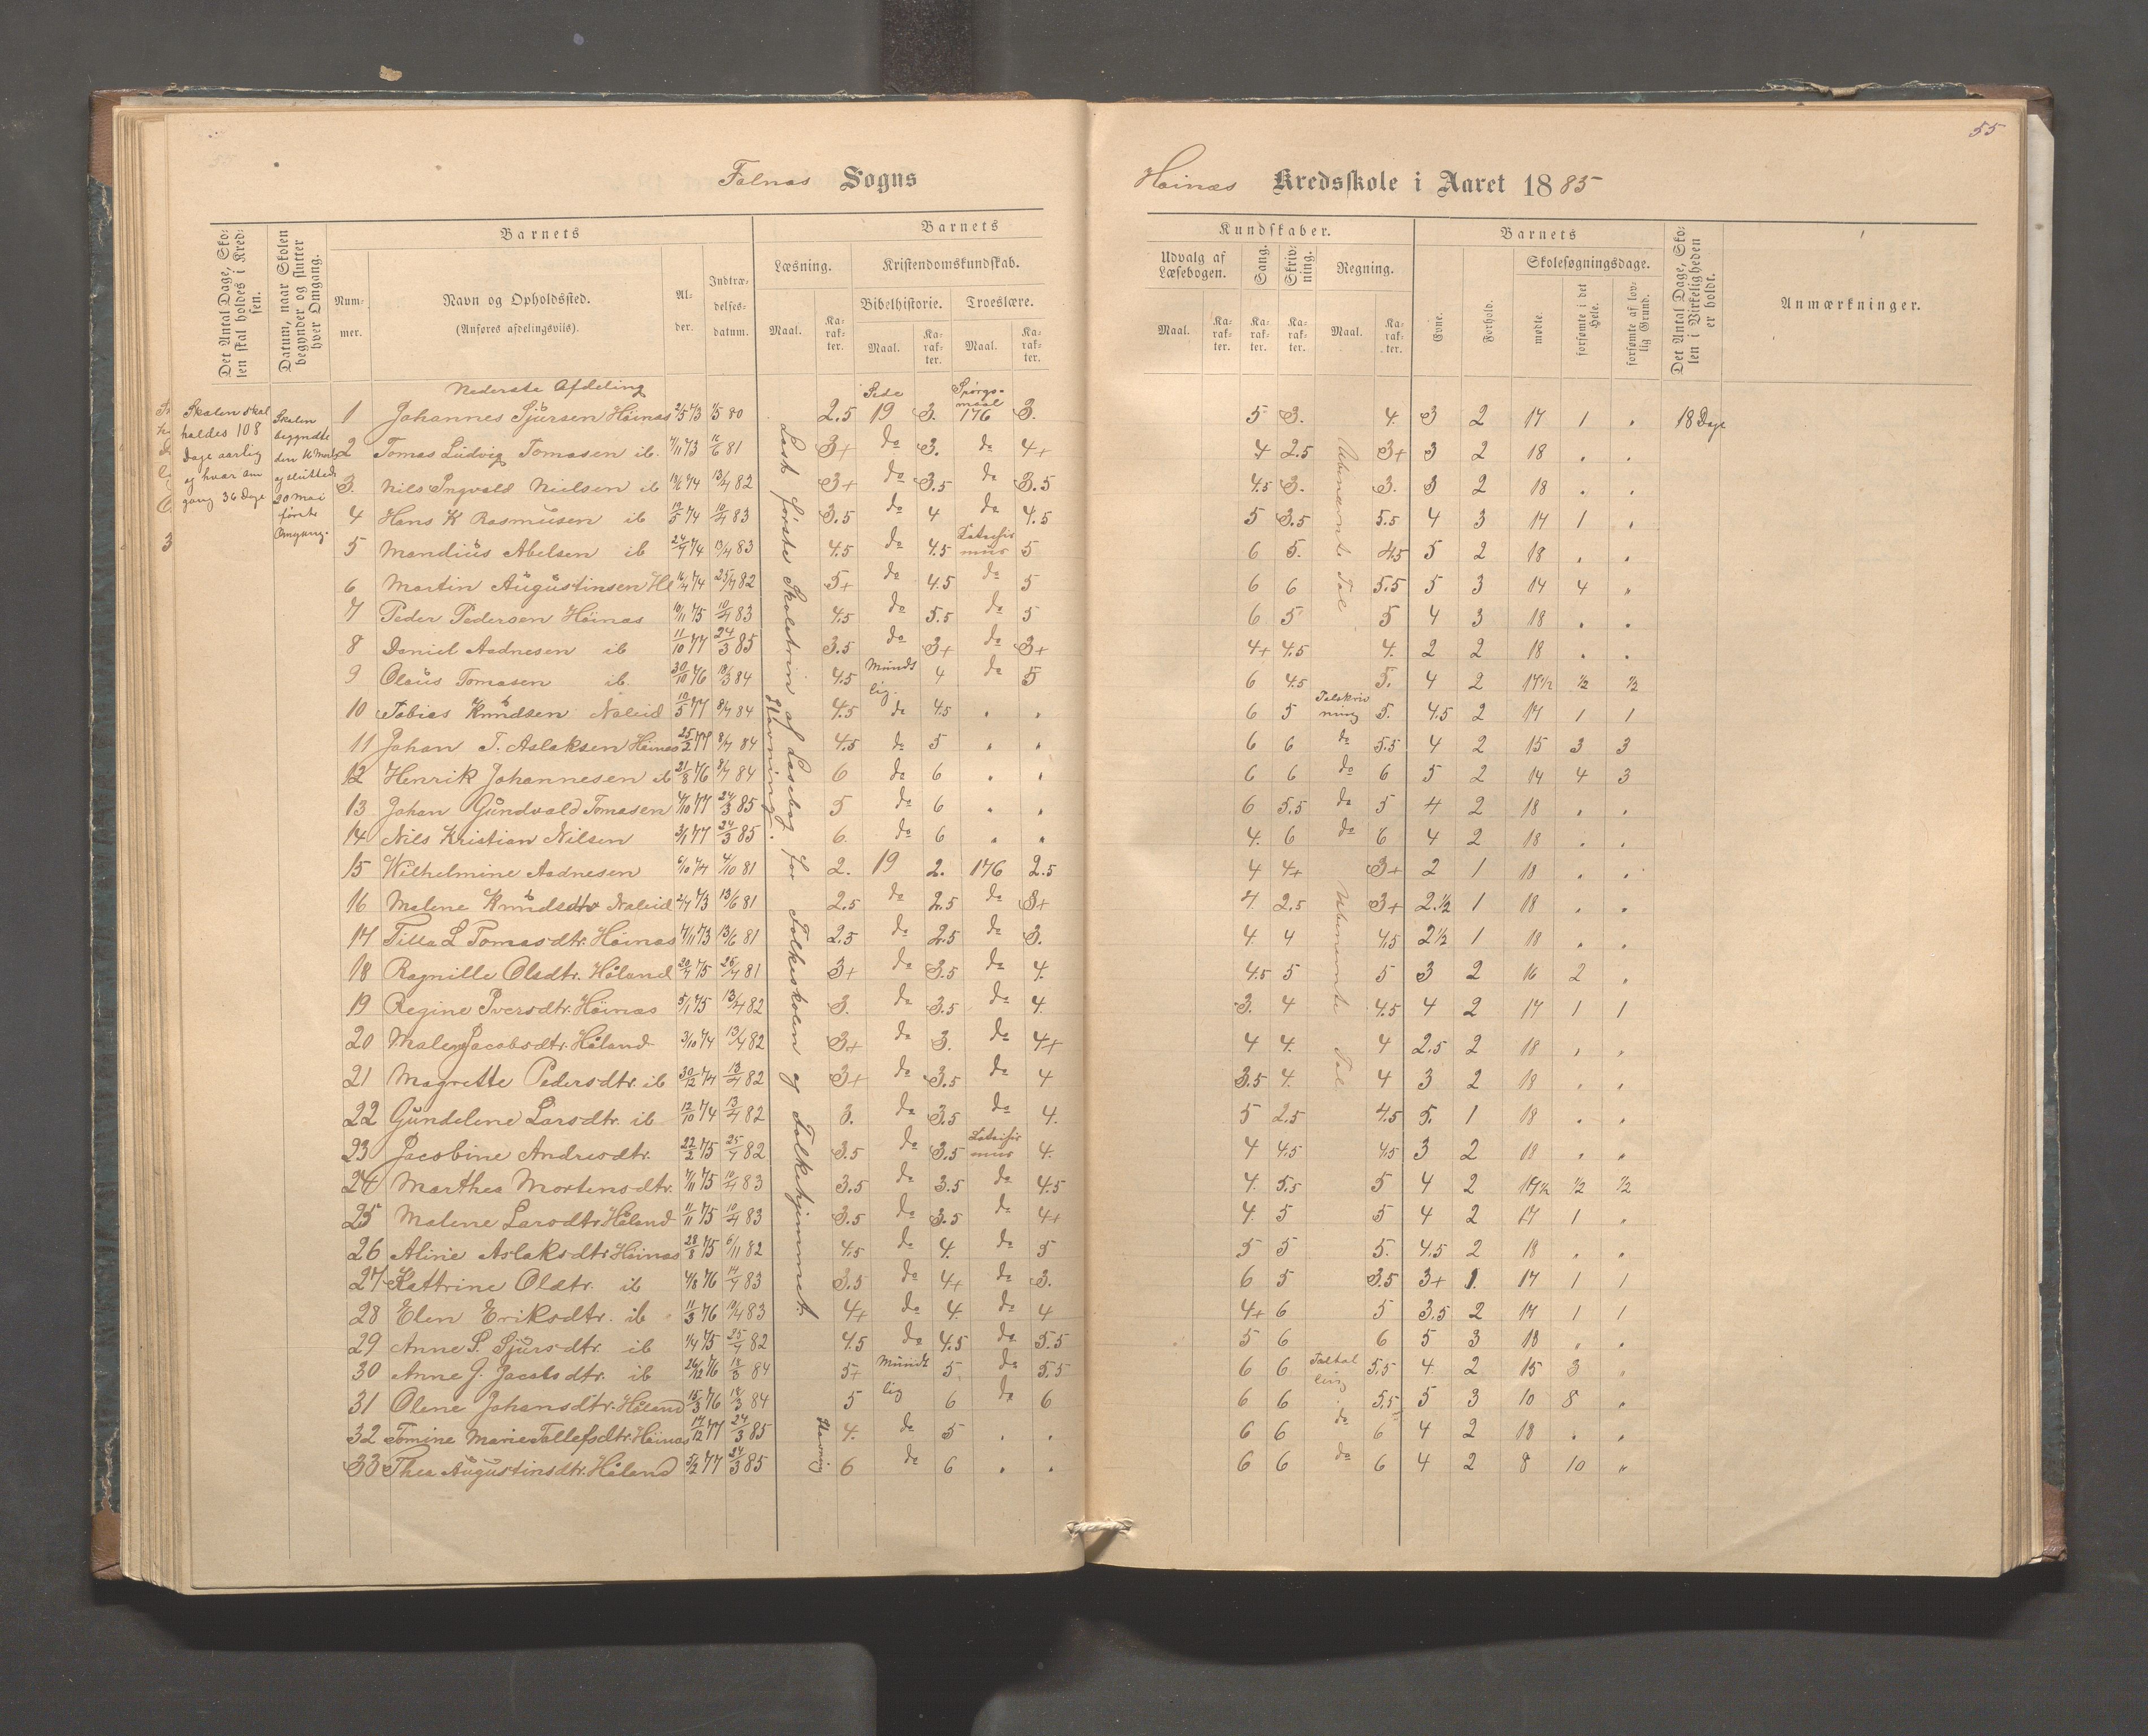 55
Falnæs Sogns
Høinæs Kredsskole i Aaret 1885
Det Antal Dage, Skolen skal holdes i Kredsen.
Datum, naar Skolen begynder og slutter hver Omgang.
Barnets
Nummer.
Navn og Opholdssted.
(Anføres afdelingsvis).
Alder.
Indtrædelsesdatum.
Barnets
Læsning.
Kristendomskundskab.
Bibelhistorie. Troeslære.
Maal. Karakter. Maal. Karakter. Maal. Karakter.
Kundskaber.
Udvalg af Læsebogen. Sang. Skrivning. Regning.
Maal. Karakter. Karakter. Karakter. Maal. Karakter.
Barnets
Evne. Forhold.
Skolesøgningsdage.
mødte. forsømte i det Hele. forsømte af lovlig Grund.
Det Antal Dage, Skolen i Virkeligheden er holdt.
Anmærkninger.
Skolen skal
holdes 108
Dage aarlig
og hvær om
gang 36 Dage
Skolen
begyndte
den 16 Marts
og sluttede
20 Mai
første
Omgang.
Læst første Skoletrin af Læsebog for Folkeskolen og Folkehjemmet.
Stavning.
Stavning
Ubenævnte Tal
Ubenævnte Tal
Nederste Afdeling
1 Johannes Sjursen Høinæs 2/5 73 1/5 80 2.5 Side 19 3. Spørgsmaal 176 3. 5 3. 4. 3 2 17 1 " 18 Dage
2 Tomas Ludvig Tomasen ib. 7/11 73 16/6 81 3+ do 3. do 4+ 4 2.5 3+ 3 2 18 " "
3. Nils Ingvald Nielsen ib 13/6 74 13/4 82 3+ do 3.5 do 3.5 4.5 3. 3. 3 2 18 " "
4 Hans K Rasmusen ib 12/5 74 10/4 83 3.5 do 4 do 4.5 5 3.5 5.5 4 3 17 1 "
5 Mandius Abelsen ib 24/9 74 13/4 83 4.5 do 4.5 Katekismus 5 6 5. 4.5 5 2 18 " "
6 Martin Augustinsen Hl 16/4 74 25/4 82 5+ do 4.5 do 5 6 6 5.5 5 3 14 4 "
7 Peder Pedersen Høinæs 10/11 75 10/4 83 4.5 do 5.5 do 5 6 5 5 4 3 18 " "
8 Daniel Aadnesen ib 11/10 77 24/3 85 3.5 do 3+ do 3+ 4+ 4.5 4. 2 2 18 " "
9 Olaus Tomasen ib. 30/10 76 18/3 84 4.5 Mundtlig. 4 do 5 6 4.5 5. 4 2 17½ ½ ½
10 Tobias Knudsen Naleid 10/5 77 8/7 84 4.5 do 4.5 " " 6 5 Talskrivning 5. 4.5 2 17 1 1
11 Johan T. Aslaksen Høinæs 25/2 77 8/7 84 4.5 do 5 " " 6 6 do 5.5 4 2 15 3 3
12 Henrik Johannesen ib 21/8 76 8/7 84 6 do 6 " " 6 6 do 6 5 2 14 4 3
13 Johan Gundvald Tomasen 4/10 77 24/3 85 5 do 6 " " 6 5.5 do 5 4 2 18 " "
14 Nils Kristian Nilsen 3/1 77 24/3 85 6. do 6 " " 4. 6 do 6 4 2 18 " "
15 Wilhelmine Aadnesen 6/10 74 4/10 81 2. 19 2. 176 2.5 4 4+ 3+ 2 1 18 " "
16 Malene Knudsdtr Naleid 2/7 73 13/6 81 2.5 do 2.5 do 3+ 4. 2.5 3+ 2.½ 1 18 " "
17 Tilla L Tomasdtr. Høinæs 7/11 73 13/6 81 2.5 do 2.5 do 3. 4. 4 4.5 2½ 1 18 " "
18 Ragnille Olsdtr. Håland 20/7 75 26/4 81 3+ do 3.5 do 4. 4.5 5 5 3 2 16 2 "
19 Regine Iversdtr. Høinæs 5/1 75 13/4 82 3. do 3.5 do 4. 3. 4 4.5 4 2 17 1 1
20 Malene Jacobsdtr. Håland 3/10 74 13/4 82 3+ do 3. do 4+ 4 4. 4 2.5 2 18 " "
21 Magrette Pedersdtr. ib 30/12 74 13/4 82 3+ do 3.5 do 4 3.5 4. 4 3 2 18 " "
22 Gundelene Larsdtr. ib 12/10 74 13/4 82 3. do 3.5 do 4. 5 2.5 4.5 5. 1 18 " "
23 Jacobine Andresdtr. 22/2 75 25/4 82 3.5 do 3.5 Katekismus 4. 4 4.5 4.5 3 2 18 " "
24 Marthea Mortensdtr. 7/11 75 10/4 83 3.5 do 3.5 do 4.5 4. 5.5 5 4 2 17½ ½ ½
25 Malene Larsdtr Håland 11/11 75 10/4 83 3.5 do 3.5 do 4+ 4. 5 5 4 2 17 1 "
26 Aline Aslaksdtr Høinæs 28/8 75 6/11 82 4.5 do 4. do 5 5 5 5. 4.5 2 18 " "
27 Kattrine Olsdtr. ib 4/8 76 14/4 83 3.5 do 4+ do 3. 6 5 3.5 3+ 1. 17 1 1
28 Elen Eriksdtr. ib 11/3 76 10/4 83 4+ do 4. do 4 4+ 6 5 3.5 2 17 1 1
29 Anne S. Sjursdtr. ib 1/4 75 25/4 82 4.5 do 4.5 do 5.5 5 6 6 5 3 18 " "
30 Anne J. Jacobsdtr. ib 26/12 76 18/3 84 5+ Mundtlig 5. do 5.5 6 6 Taltælling 5.5 4. 2 15 3 "
31 Olene Johansdtr. Håland 15/3 76 18/3 84 5 6 do 6 6 6 5.5 5 3 10 8 "
32 Tomine Marie Tollefsdtr. Høinæs 14/12 77 24/3 85 4. do 5 " " 6 6 do 6 4 2 18 " "
33 Thea Augustinsdtr. Håland 5/2 77 24/3 85 6 do 6 " " 6 6 do 6 4 2 8 10 "